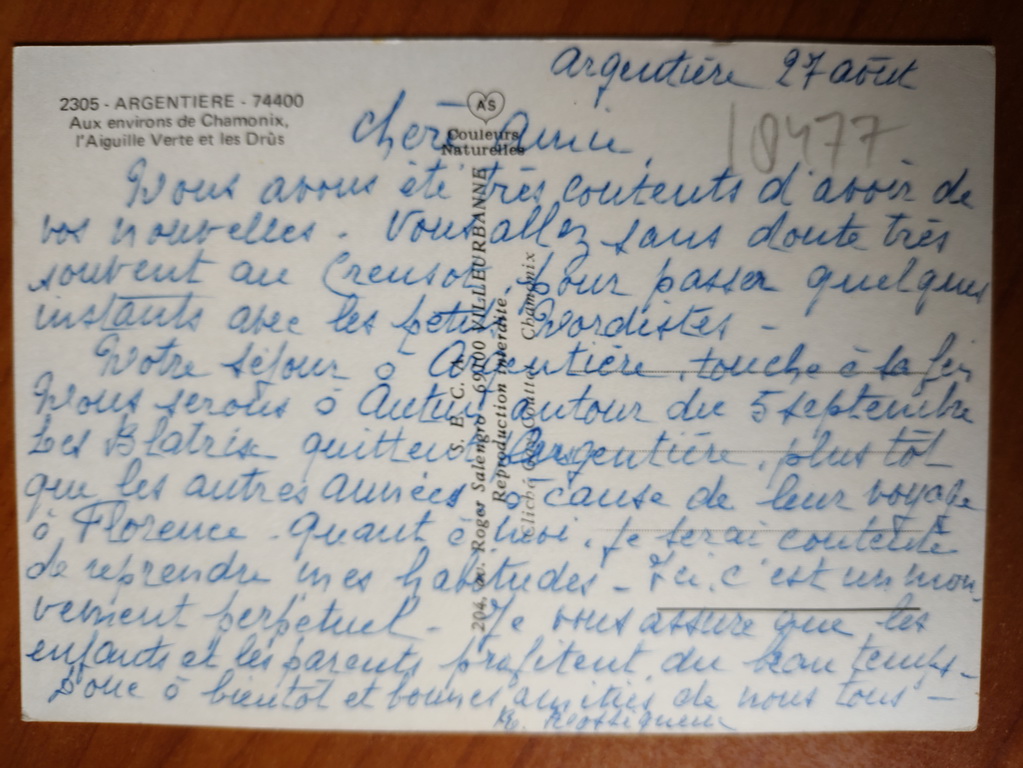 Argentière 27 août
2305 - ARGENTIERE - 74400
Aux environs de Chamonix,
l'Aiguille Verte et les Drûs
AS
Couleurs
Naturelles
18477
Chère amie,
Nous avons été très contents d'avoir de
vos nouvelles - Vous allez sans doute très
souvent au Creusot, pour passer quelques
instants avec les petits Nordistes -
Notre séjour à Argentière, touche à la fin
Nous serons à Autun autour du 5 septembre
Les Blatrix quittent Argentière, plus tôt
que les autres années à cause de leur voyage
à Florence. Quant à moi, je serai contente
de reprendre mes habitudes - Ici, c'est un mou-
vement perpétuel - Je vous assure que les
enfants et les parents profitent du beau temps -
Donc à bientôt et bonnes amitiés de nous tous -
S. E. C. A.
204, av. Roger Salengro - 69100 VILLEURBANNE
Reproduction interdite
Cliché Chamonix